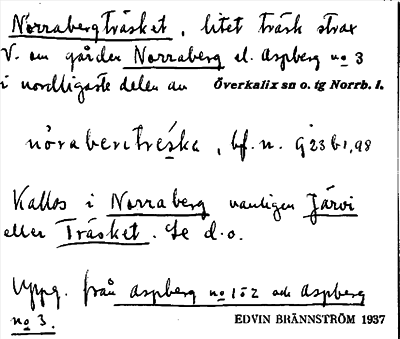 Norrabergträsket, litet träsk strax
V. om gården Norraberg el. Aspberg no 3
i nordligaste delen av Överkalix sn o. tg Norrb. l.
nórabentrèska, bf. n. G 23 b 1, 98
Kallas i Norraberg vanligen Järvi
eller Träsket. Se d.o.
Uppg. från Aspberg no 1 o 2 och Aspberg
no 3. EDVIN BRÄNNSTRÖM 1937